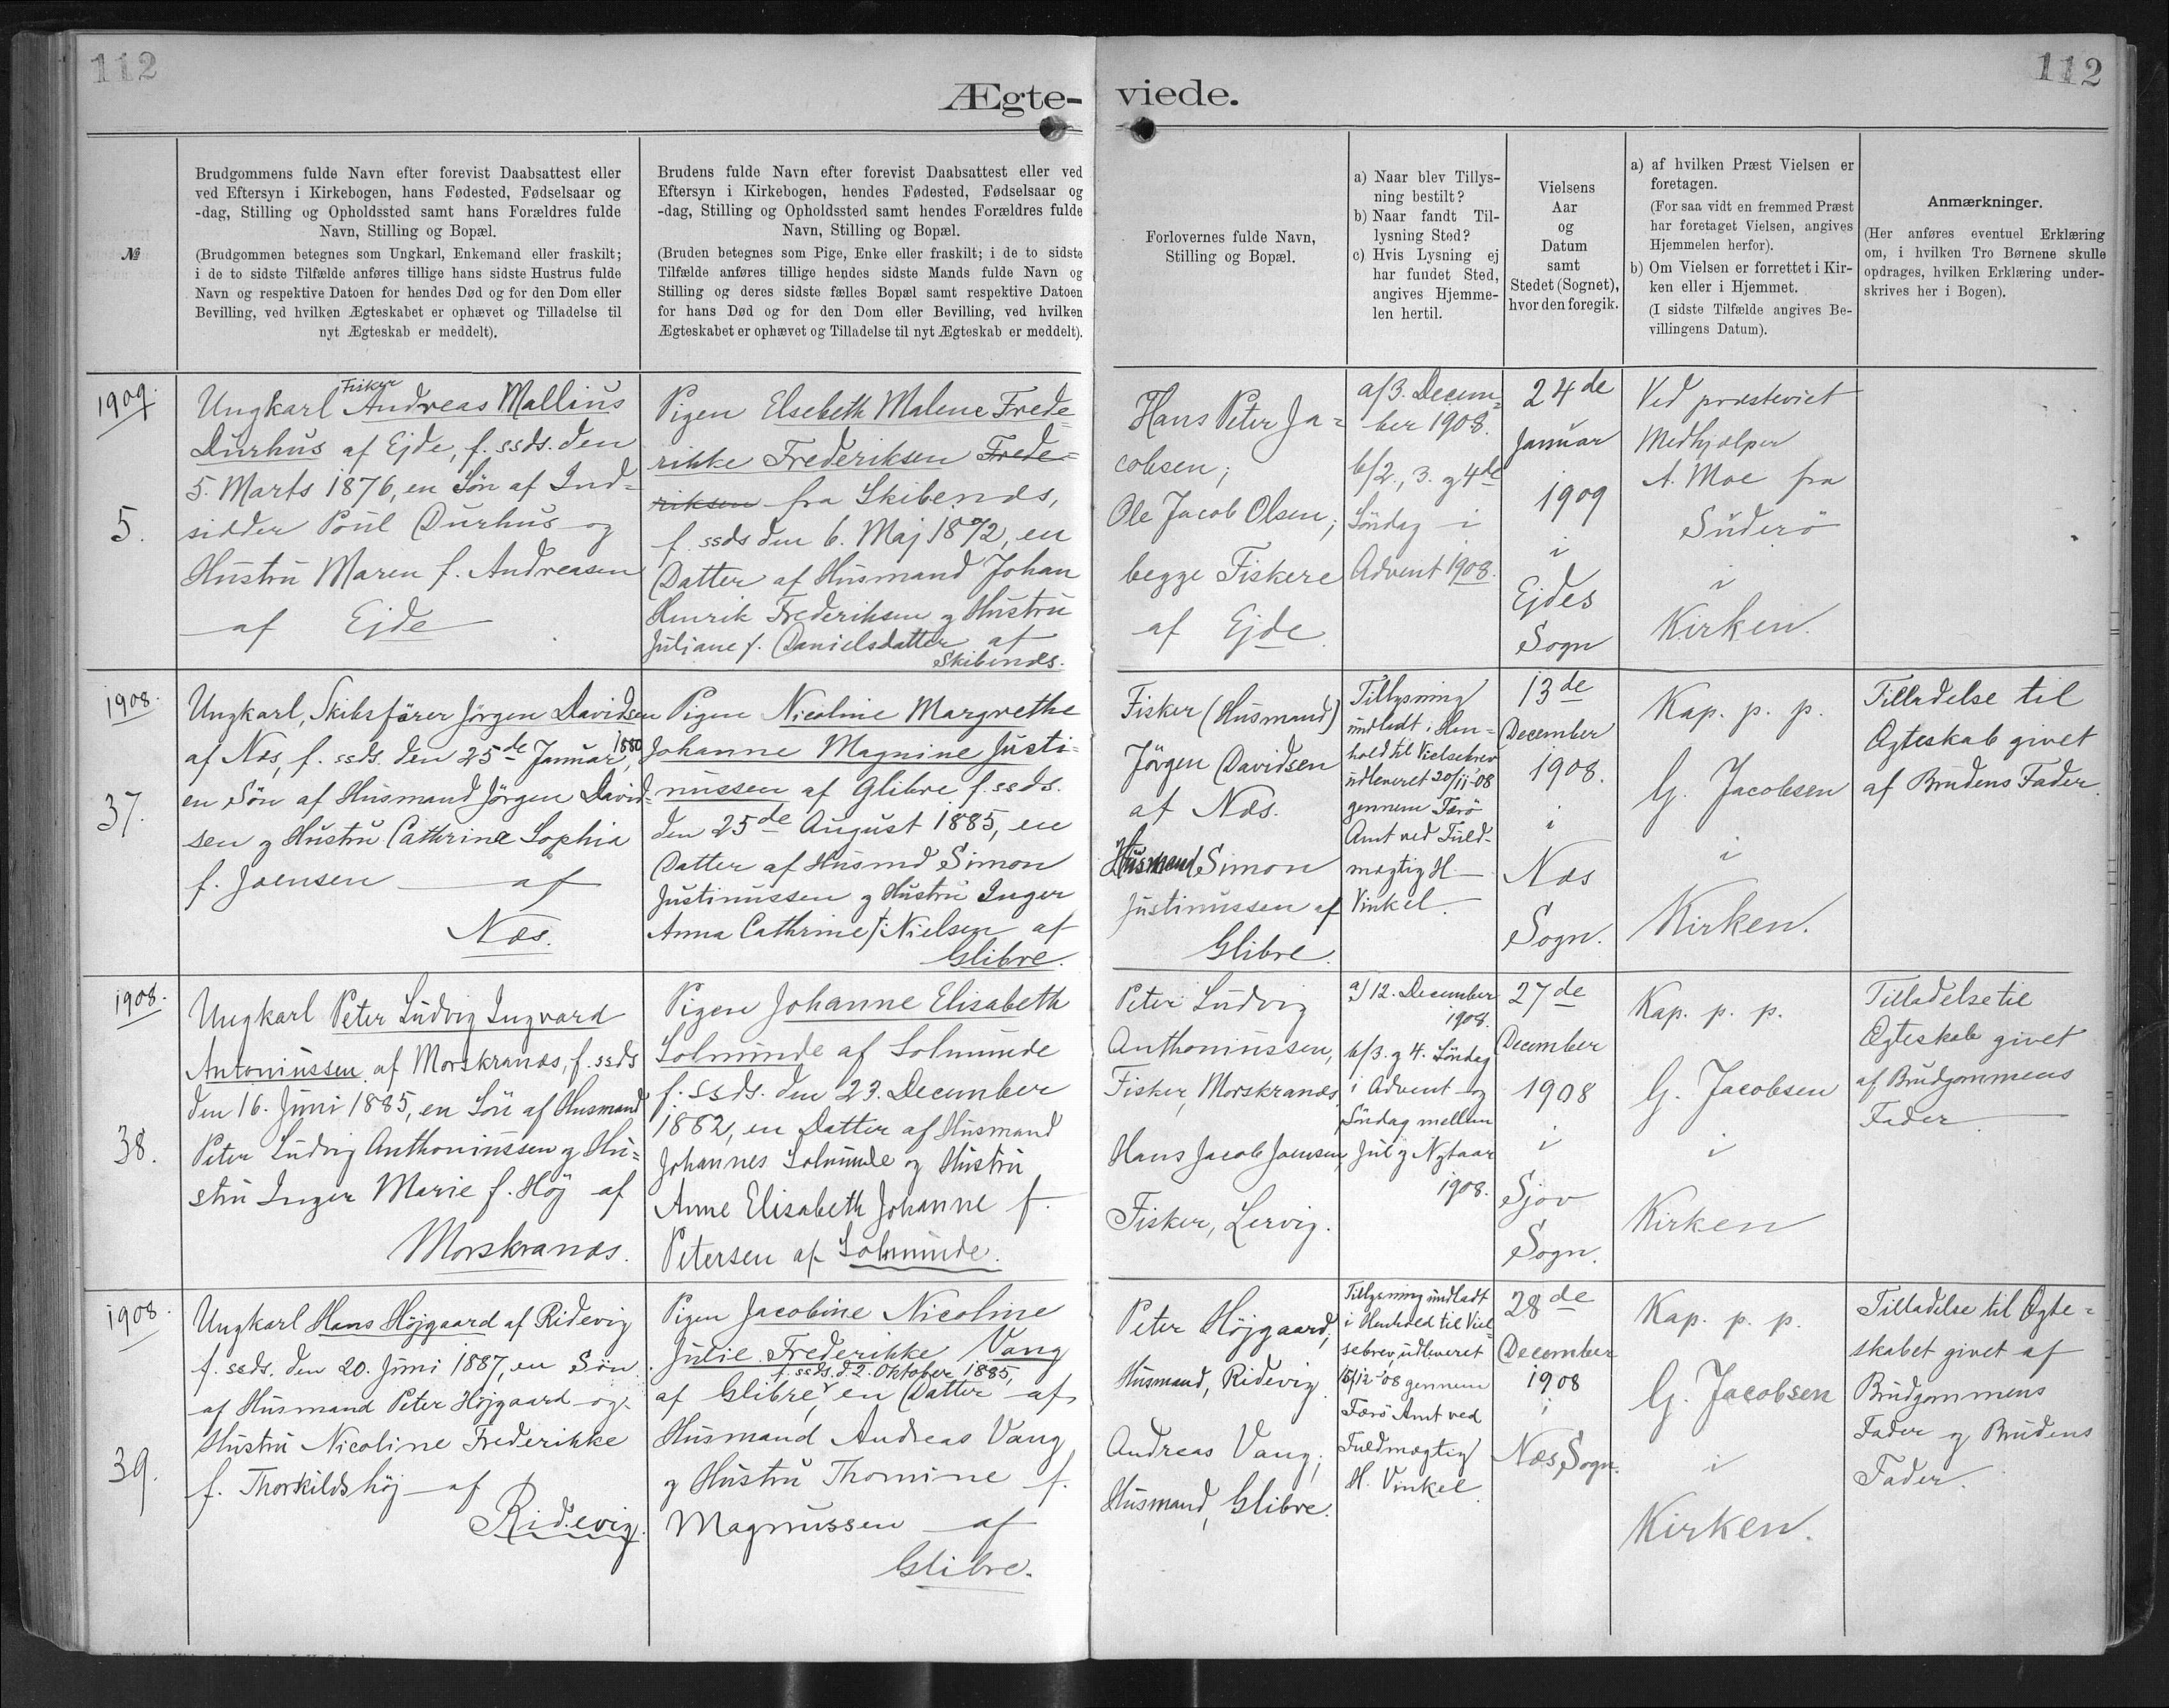 112
112
Ægte-
viede.
№
Brudgommens fulde Navn efter forevist Daabsattest eller
ved Eftersyn i Kirkebogen, hans Fødested, Fødselsaar og
-dag, Stilling og Opholdssted samt hans Forældres fulde
Navn, Stilling og Bopæl.
(Brudgommen betegnes som Ungkarl, Enkemand eller fraskilt;
i de to sidste Tilfælde anføres tillige hans sidste Hustrus fulde
Navn og respektive Datoen for hendes Død og for den Dom eller
Bevilling, ved hvilken Ægteskabet er ophævet og Tilladelse til
nyt Ægteskab er meddelt).
Brudens fulde Navn efter forevist Daabsattest eller ved
Eftersyn i Kirkebogen, hendes Fødested, Fødselsaar og
-dag, Stilling og Opholdssted samt hendes Forældres fulde
Navn, Stilling og Bopæl.
(Bruden betegnes som Pige, Enke eller fraskilt; i de to sidste
Tilfælde anføres tillige hendes sidste Mands fulde Navn og
Stilling og deres sidste fælles Bopæl samt respektive Datoen
for hans Død og for den Dom eller Bevilling, ved hvilken
Ægteskabet er ophævet og Tilladelse til nyt Ægteskab er meddelt).
Forlovernes fulde Navn,
Stilling og Bopæl.
a) Naar blev Tillys-
ning bestilt?
b) Naar fandt Til-
lysning Sted?
c) Hvis Lysning ej
har fundet Sted,
angives Hjemme-
len hertil.
Vielsens
Aar
og
Datum
samt
Stedet (Sognet),
hvor den foregik.
a) af hvilken Præst Vielsen er
foretagen.
(For saa vidt en fremmed Præst
har foretaget Vielsen, angives
Hjemmelen herfor).
b) Om Vielsen er forrettet i Kir-
ken eller i Hjemmet.
(I sidste Tilfælde angives Be-
villingens Datum).
Anmærkninger.
(Her anføres eventuel Erklæring
om, i hvilken Tro Børnene skulle
opdrages, hvilken Erklæring under-
skrives her i Bogen).
1909.
5.
Fisker
Ungkarl Andreas Mallius
Durhus af Ejde, f. ssds. den
5. Marts 1876, en Søn af Ind=
sidder Poul Durhus og
Hustru Maren f. Andreasen
af Ejde
Pigen Elsebeth Malene Frede=
rikke Frederiksen Frede=
riksen fra Skibenæs,
f. ssds den 6. Maj 1872, en
Datter af Husmand Johan
Henrik Frederiksen og Hustru
Juliane f. Danielsdatter af
Skibenæs.
Hans Peter Ja=
cobsen;
Ole Jacob Olsen;
begge Fiskere
af Ejde.
a/3. Decem=
ber 1908.
b/2., 3. og 4de
Söndag i
Advent 1908.
24de
Januar
1909
i
Ejdes
Sogn
Ved præsteviet
Medhjælper
A. Moe fra
Suderö
i
Kirken.
1908.
37.
Ungkarl, Skibsfører Jörgen Davidsen
af Næs, f. ssds. den 25de Januar 1880,
en Søn af Husmand Jörgen David=
sen og Hustru Cathrine Sophia
f. Joensen af
Næs.
Pigen Nicoline Margrethe
Johanne Magnine Justi=
nussen af Glibre f. ssds.
den 25de August 1885, en
Datter af Husmd Simon
Justinussen og Hustru Inger
Anna Cathrine f. Nielsen af
Glibre.
Fisker (Husmand)
Jörgen Davidsen
af Næs.
Husmand Simon
Justinussen af
Glibre.
Tillysning
undladt i Hen=
hold til Vielsebrev
udleveret 20/11-08
gennem Færö
Amt ved Fuld-
mægtig H.
Vinkel.
13de
December
1908.
i
Næs
Sogn.
Kap. p. p.
G. Jacobsen
i
Kirken.
Tilladelse til
Ægteskab givet
af Brudens Fader.
1908.
38.
Ungkarl Peter Ludvig Ingvard
Antoniussen af Morskranæs, f. ssds
den 16. Juni 1885, en Søn af Husmand
Peter Ludvig Anthoniussen og Hu=
stru Inger Marie f. Höj af
Morskranæs.
Pigen Johanne Elisabeth
Solmunde af Solmunde
f. ssds. den 23. December
1882, en Datter af Husmand
Johannes Solmunde og Hustru
Anne Elisabeth Johanne f.
Petersen af Solmunde.
Peter Ludvig
Anthoniussen,
Fisker, Morskranæs,
Hans Jacob Joensen,
Fisker, Lervig.
a) 12. December
1908.
b/3. og 4. Söndag
i Advent og
Söndag mellem
Jul og Nytaar
1908.
27de
December
1908
i
Sjov
Sogn.
Kap. p. p.
G. Jacobsen
i
Kirken
Tilladelse til
Ægteskab givet
af Brudgommens
Fader
1908.
39.
Ungkarl Hans Höjgaard af Ridevig
f. ssds. den 20. Juni 1887, en Søn
af Husmand Peter Höjgaard og
Hustru Nicoline Frederikke
f. Thorkildshöj af
Ridevig.
Pigen Jacobine Nicoline
Julie Frederikke Vang
f. ssds. d. 2. Oktober 1885,
af Glibre, en Datter af
Husmand Andreas Vang
og Hustru Thomine f.
Magnussen af
Glibre.
Peter Höjgaard,
Husmand, Ridevig
Andreas Vang,
Husmand, Glibre.
Tillysning undladt
i Henhold til Viel=
sebrev, udleveret
15/12-08 gennem
Færö Amt ved
Fuldmægtig
H. Vinkel
28de
December
1908
i
Næs Sogn.
Kap. p. p.
G. Jacobsen
i
Kirken.
Tilladelse til Ægte=
skabet givet af
Brudgommens
Fader og Brudens
Fader.